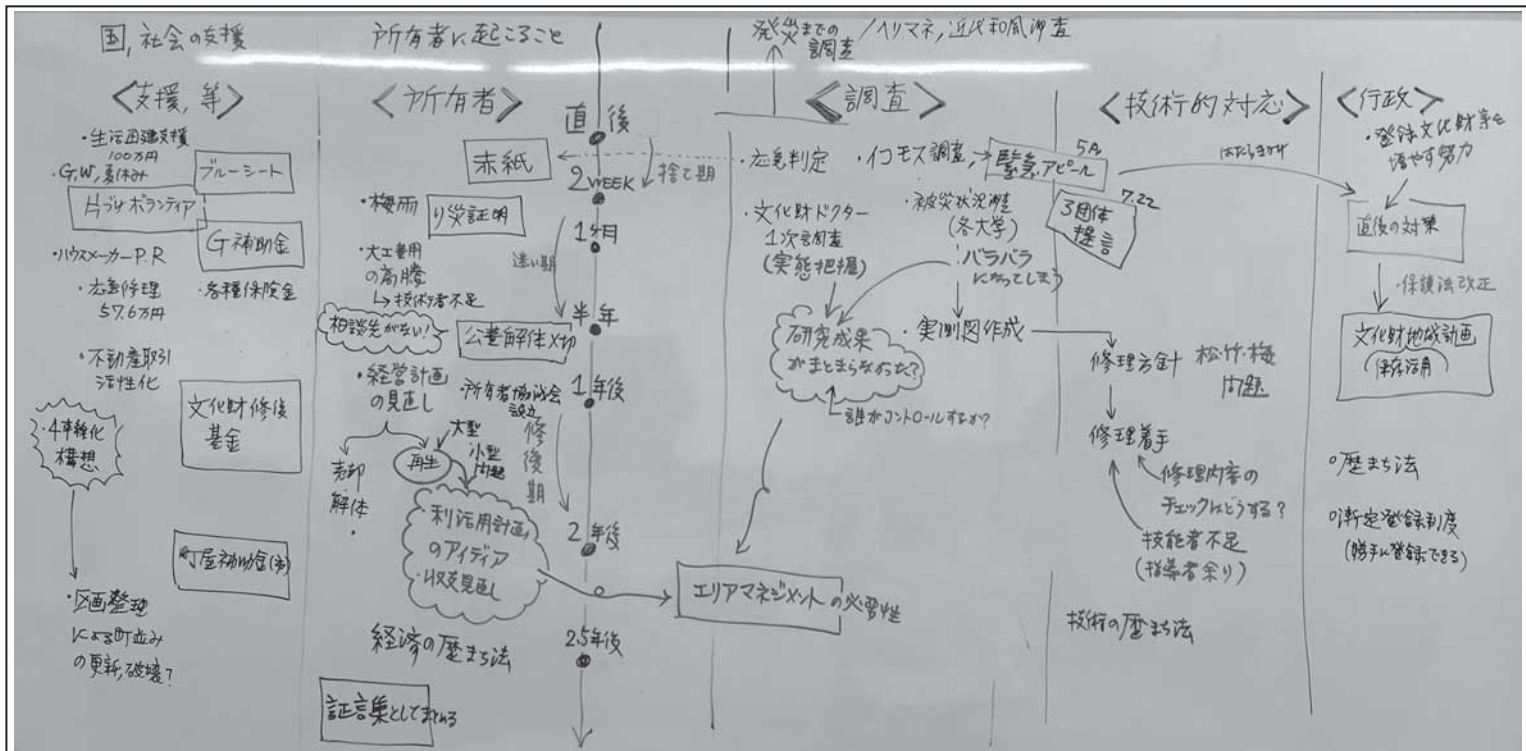 国,社会の支援
所有者に起こること
発災までの
調査
/ヘリマネ,近代和風調査
<支援,等>
・生活再建支援
100万円
・G.W,夏休み
ブルーシート
片づけボランティア
G補助金
・ハウスメーカーP.R
・応急修理
57.6万円
・各種保険金
・不動産取引
活性化
文化財修復
基金
・4車線化
構想
町屋補助金(市)
・区画整理
による町並み
の更新,破壊?
<所有者>
赤紙
・梅雨
り災証明
・大工費用
の高騰
↳技術者不足
相談先がない!
公費解体〆切
・経営計画
の見直し
・所有者協議会
設立
大型
小型
問題
再生
売却
解体
・利活用計画
のアイディア
・収支見直し
経済の歴まち法
証言集としてまとめる
直後
2WEEK
捨て期
1ヶ月
迷い期
半年
1年後
修復期
2年後
2.5年後
<調査>
・応急判定
・イコモス調査
・文化財ドクター
1次調査
(実態把握)
・被災状況調査
(各大学)
バラバラ
になってしまう
研究成果
がまとまらなかった?
誰がコントロールするか?
・実測図作成
エリアマネジメントの必要性
<技術的対応>
5月
緊急アピール
7.22
3団体
提言
修理方針
松・竹・梅
問題
修理着手
修理内容の
チェックはどうする?
技能者不足
(指導者余り)
技術の歴まち法
<行政>
・登録文化財等を
増やす努力
はたらきかけ
直後の対策
・保護法改正
文化財地域計画
(保存活用)
○歴まち法
○暫定登録制度
(勝手に登録できる)